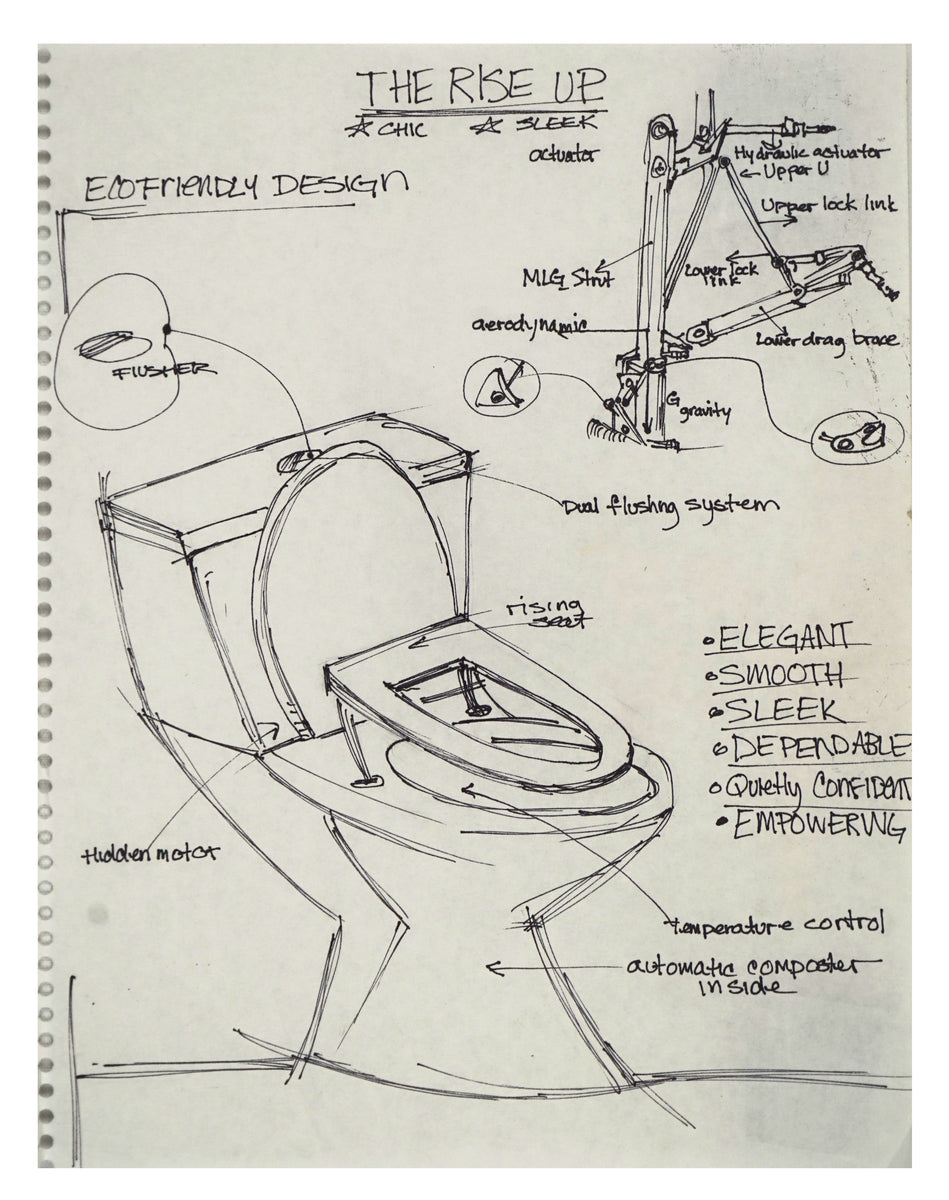 THE RISE UP
☆ CHIC ☆ SLEEK
actuator
Hydraulic actuator
Upper U
ECOFRIENDLY DESIGN
Upper lock link
Lower lock
link
MLG Strut
aerodynamic
Lower drag brace
FLUSHER
G
gravity
Dual flushng system
rising
seat
• ELEGANT
• SMOOTH
• SLEEK
• DEPENDABLE
• Quietly CONFIDENT
• EMPOWERING
Hidden motor
temperature control
automatic composter
inside